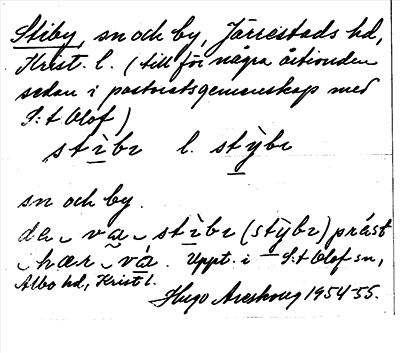 Stiby, sn och by, Järrestads hd,
Krist. l. (till för några årtionden
sedan i pastoratsgemenskap med
S:t Olof)
stibı l. stẏbı
sn och by.
de va stibı (stybı) präst
hær vá. Uppt. i S:t Olof sn,
Albo hd, Krist l.
Hugo Areskoug 1954-55.